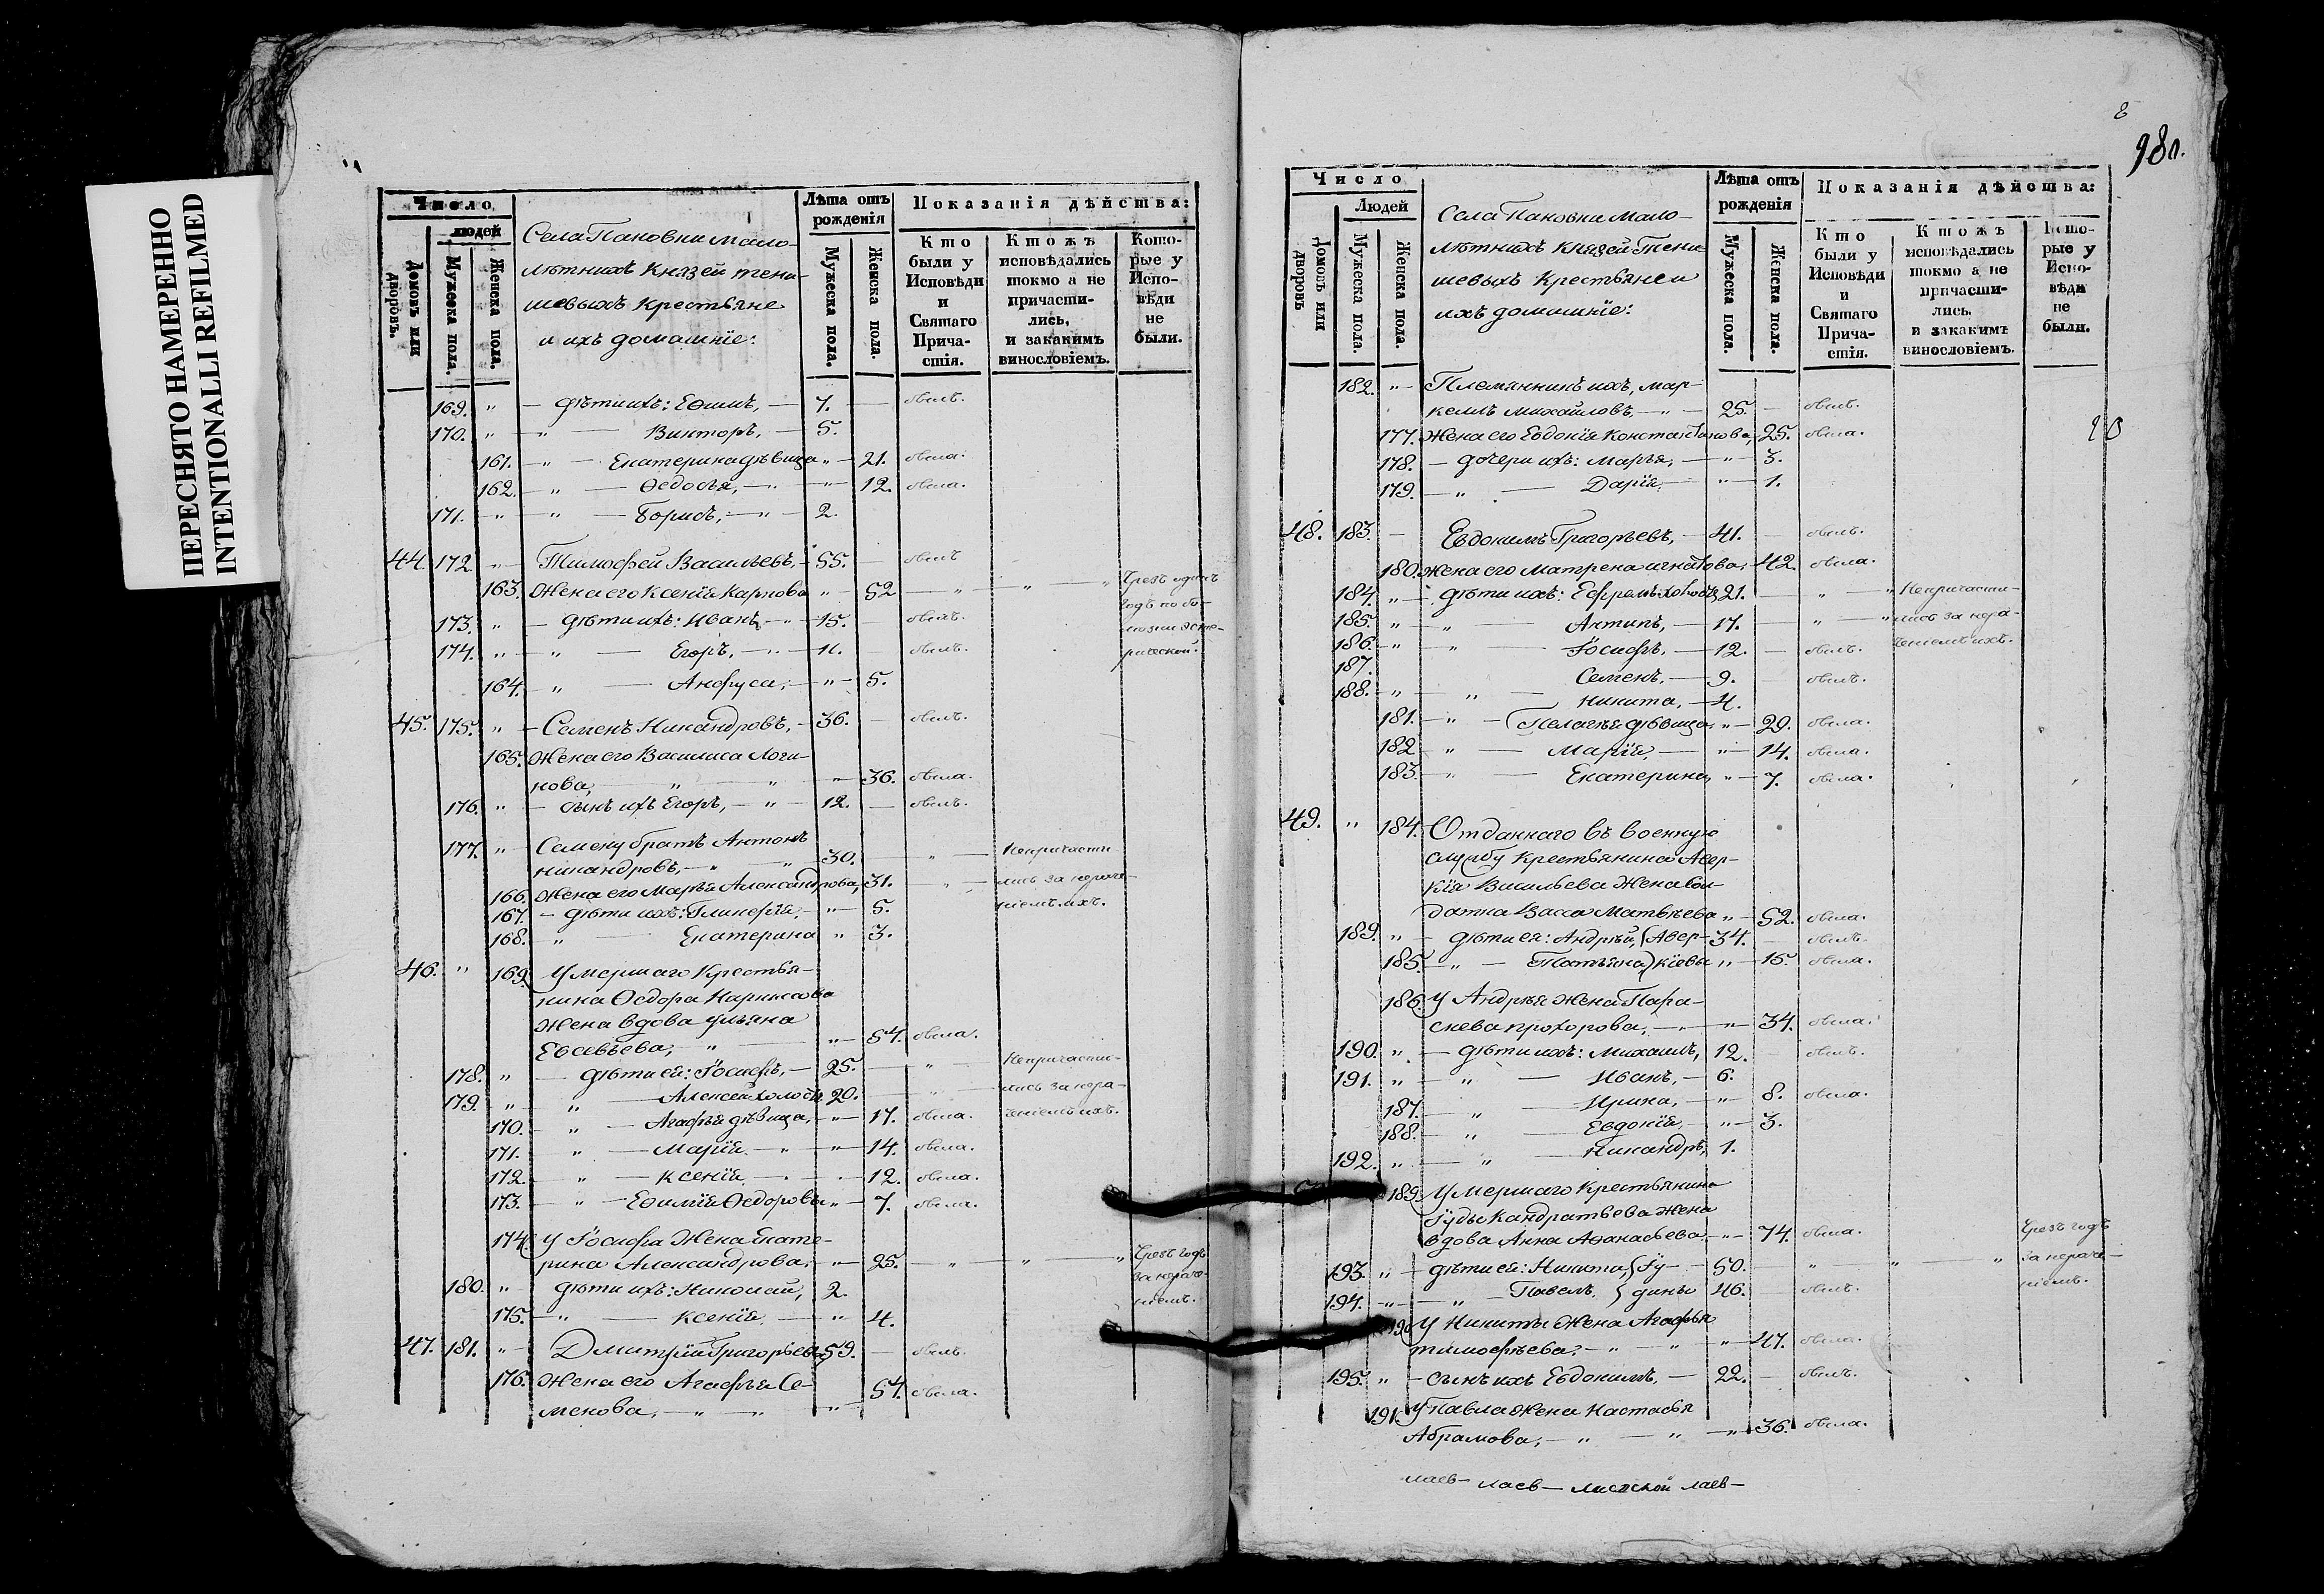 ПЕРЕСНЯТО НАМЕРЕННО
INTENTIONALLI REFILMED
Число
людей
Домовъ или дворовъ.
Мужеска пола.
Женска пола.
Села Пановки мало-
лѣтнихъ Князей тени-
шевыхъ Крестьяне
и ихъ домашніе:
Лѣта отъ рожденія
Мужеска пола.
Женска пола.
Показанія дѣйства:
Кто были у Исповѣди и Святаго Прича-стія.
Ктожъ исповѣдались токмо а не причасти-лись, и закакимъ винословіемъ.
Кото-рые у Испо-вѣди не были.
169. " — дѣти ихъ: Ефимъ, — 7. — былъ.
170. " — " — Викторъ, — 5.
161. — " — Екатерина дѣвица " — 21. была.
162. — " — Ѳедосья, — " — 12. была.
171. — " — " — Борисъ, — " — 2.
44. 172. " — Тимофей Васильевъ, — 55. — былъ
163. Жена его Ксенія Карпова " — 52 — " — " — " Чрезъ одинъ
173. " — дѣти ихъ: Иванъ, — " — 15. — былъ. годъ по бо-
174. " — " — Егоръ, — " — 11. — былъ.
164. — " — Анфуса, — " — 5.
45. 175. " — Семенъ Никандровъ, — 36. — былъ.
165. Жена его Василиса Логи-
нова, — " — " — " — 36. была.
176. " — сынъ ихъ Егоръ, — " — 12. — былъ.
177. " — Семену братъ Антонъ
никандровъ, — " — " — 30. — " — Непричасти
166. Жена его Марья Александрова, 31. — " — лись за нераче-
167. — дѣти ихъ: Гликерія, — " — 5. ніемъ ихъ.
168. — " — Екатерина " 3.
46. " 169. Умершаго Крестья-
нина Ѳедора
жена вдова Ульяна
Евсевьева, — " — " — 54. была.
178. " — дѣти ея: Іосифъ, — 25. — " — Непричасти-
179. " — " — Алексей холостъ, 20. — " — лись за нера-
170. — " — Агафья дѣвица, — " — 17. была. ченіемъ ихъ.
171. " — Марія. — " — " — 14. была.
172. — " — Ксенія. — 12. была.
173. — " — Евфимія Ѳедоровы " — 7. была.
174. У Іосифа Жена Екате-
рина Александрова, — " — 25. — " — " — " Чрезъ годъ
180. " — дѣти ихъ: Николай, 2. за нераче-
175. — " — Ксенія. — " — 4. ніемъ.
47. 181. " — Дмитрій Григорьевъ, 59. — былъ.
176. Жена его Агафья Се-
менова, — " — " — " — 54. была.
980.
Число
Людей
Домовъ или дворовъ
Мужеска пола.
Женска пола.
Села Пановки Мало-
лѣтнихъ Князей Тени-
шевыхъ Крестьяне и
ихъ домашніе:
Лѣта отъ рожденія
Мужеска пола.
Женска пола.
Показанія дѣйства:
Кто были у Исповѣди и Святаго Прича-стія.
Ктожъ исповѣдались токмо а не причасти-лись, и закакимъ винословіемъ.
Кото-рые у Испо-вѣди не были.
182. " — Племянникъ ихъ, мар-
келъ михайловъ, — " — 25. — былъ.
177. Жена его Евдокія Константинова, 25. была.
178. — дочери ихъ: Марья, — " — 3.
179. — " — Дарія, — " — 1.
48. 183. — Евдокимъ Григорьевъ, — 41. — былъ.
180. жена его Матрена игнатова, 42. была.
184. " — дѣти ихъ: Ефремъ холостъ, 21. — " — " Непричасти-
185. " — " — Антипъ, — 17. — " — " лись за нера-
186. — " " — Іосифъ, — 12. — былъ. ченіемъ ихъ.
187. Семенъ, — 9. — былъ.
188. — " — " — никита, — 4.
181. — " — Пелагѣя дѣвица, " — 20. была.
182 — " — Марія, — " — 14. была.
183. — " — Екатерина, " — 7. была.
49. " 184. Отданнаго въ военную
службу Крестьянина Авер-
кія Васильева Жена сол-
датка Васса Матвѣева " — 52. была.
189. " — дѣти ея: Андрѣй, (Авер- 34. — былъ.
185. — " — Татьяна) кіевы " — 15. была.
186. У Андрѣя жена Пара-
скева прохорова, — " — 34. была.
190. " — дѣти ихъ: Михаилъ, 12. былъ.
191. " — " — Иванъ, — 6.
187. — " — Ирина, — " — 8. была.
188. — " — Евдокія, — " — 3.
192. " — " — Никандръ, 1.
189. Умершаго Крестьянина
Іуды Кандратьева жена
вдова Анна Аѳанасьева — " — 74. была. Чрезъ годъ
193. " — дѣти ея: Никита, (Іу- — 50. — " — " — " за нераче-
194. — " — " — Павелъ, ) дины 46. — былъ. ніемъ.
190. У Никиты Жена Агафья
тимофѣева. — " — " — " — 47. была.
195. " — сынъ ихъ Евдокимъ, — 22. — былъ.
191. У Павла жена Настасья
Абрамова, — " — " — " — 36. была.